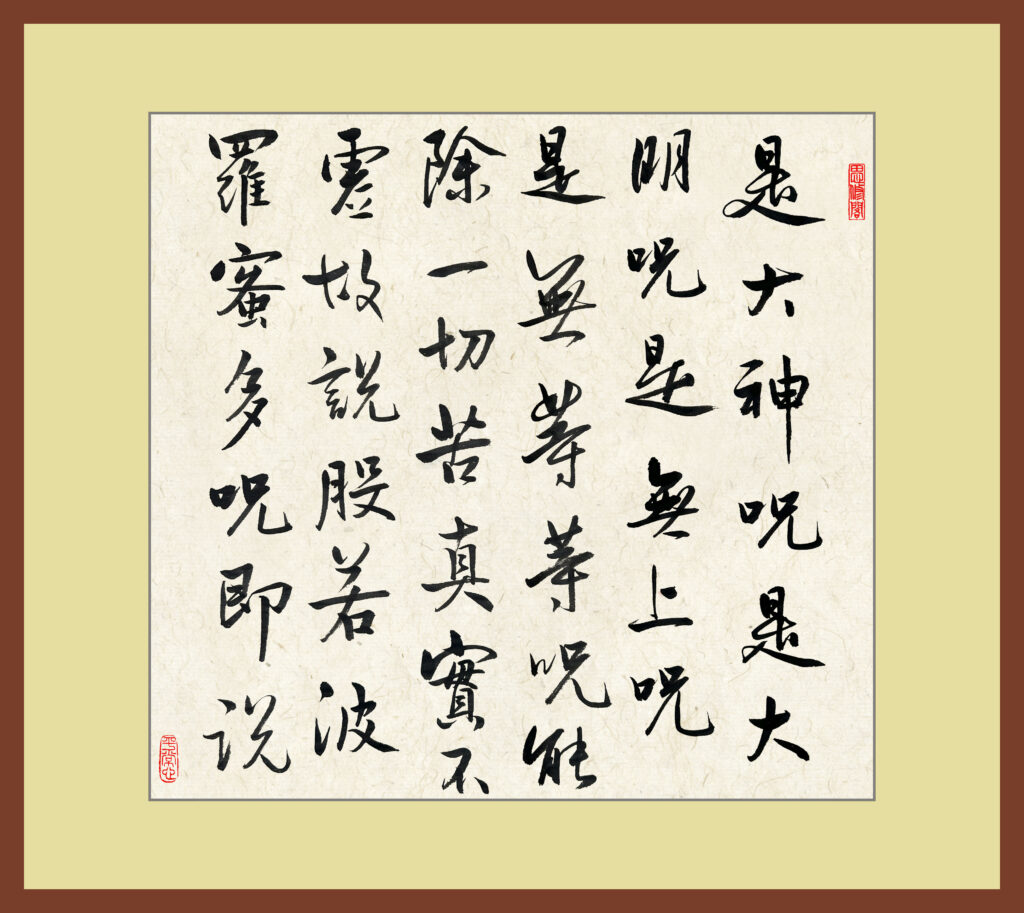 思修閣
是大神呪是大
明呪是無上呪
是無等等呪能
除一切苦真實不
虛故說般若波
羅蜜多呪即說
平常心